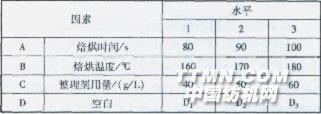 因素 水平
1 2 3
A 焙烘时间/s 80 90 100
B 焙烘温度/℃ 160 170 180
C 整理剂用量/(g/L) 40 50 60
D 空白 D₁ D₂ D₃
中国纺机网
WWW.TTMN.COM